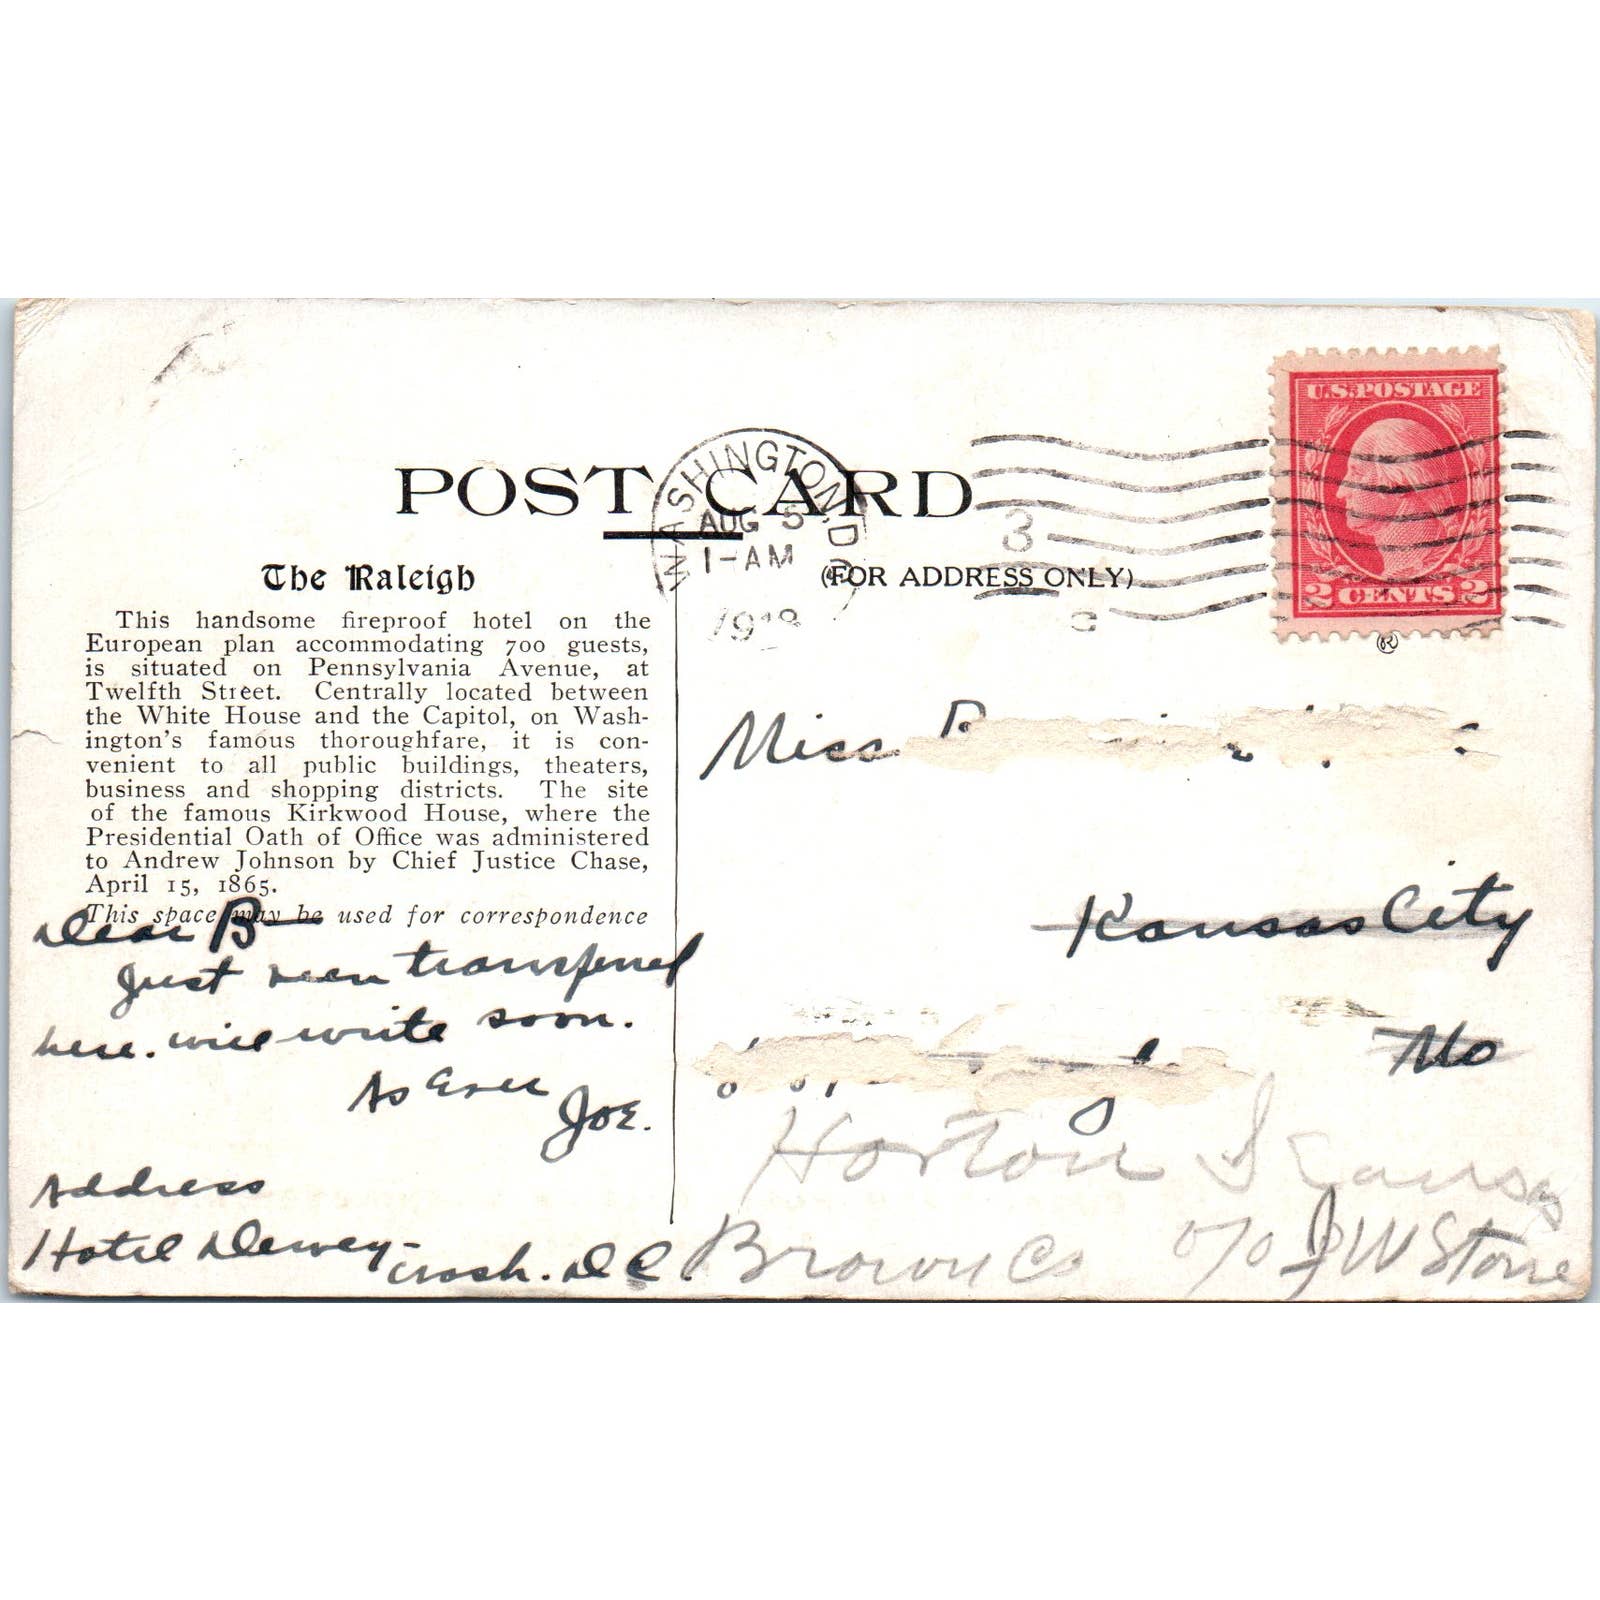 U.S. POSTAGE
2 CENTS 2
POST CARD
WASHINGTON, D.C.
AUG 5
1-AM
1918
3
C
(FOR ADDRESS ONLY)
The Raleigh
This handsome fireproof hotel on the
European plan accommodating 700 guests,
is situated on Pennsylvania Avenue, at
Twelfth Street. Centrally located between
the White House and the Capitol, on Wash-
ington's famous thoroughfare, it is con-
venient to all public buildings, theaters,
business and shopping districts. The site
of the famous Kirkwood House, where the
Presidential Oath of Office was administered
to Andrew Johnson by Chief Justice Chase,
April 15, 1865.
This space may be used for correspondence
Dear B—
Just been transferred
here. will write soon.
As Ever
Joe.
Address
Hotel Dewey-
Wash. D C.
Miss
Kansas City
Mo
Horton Kansas
Brown Co c/o J W Stone